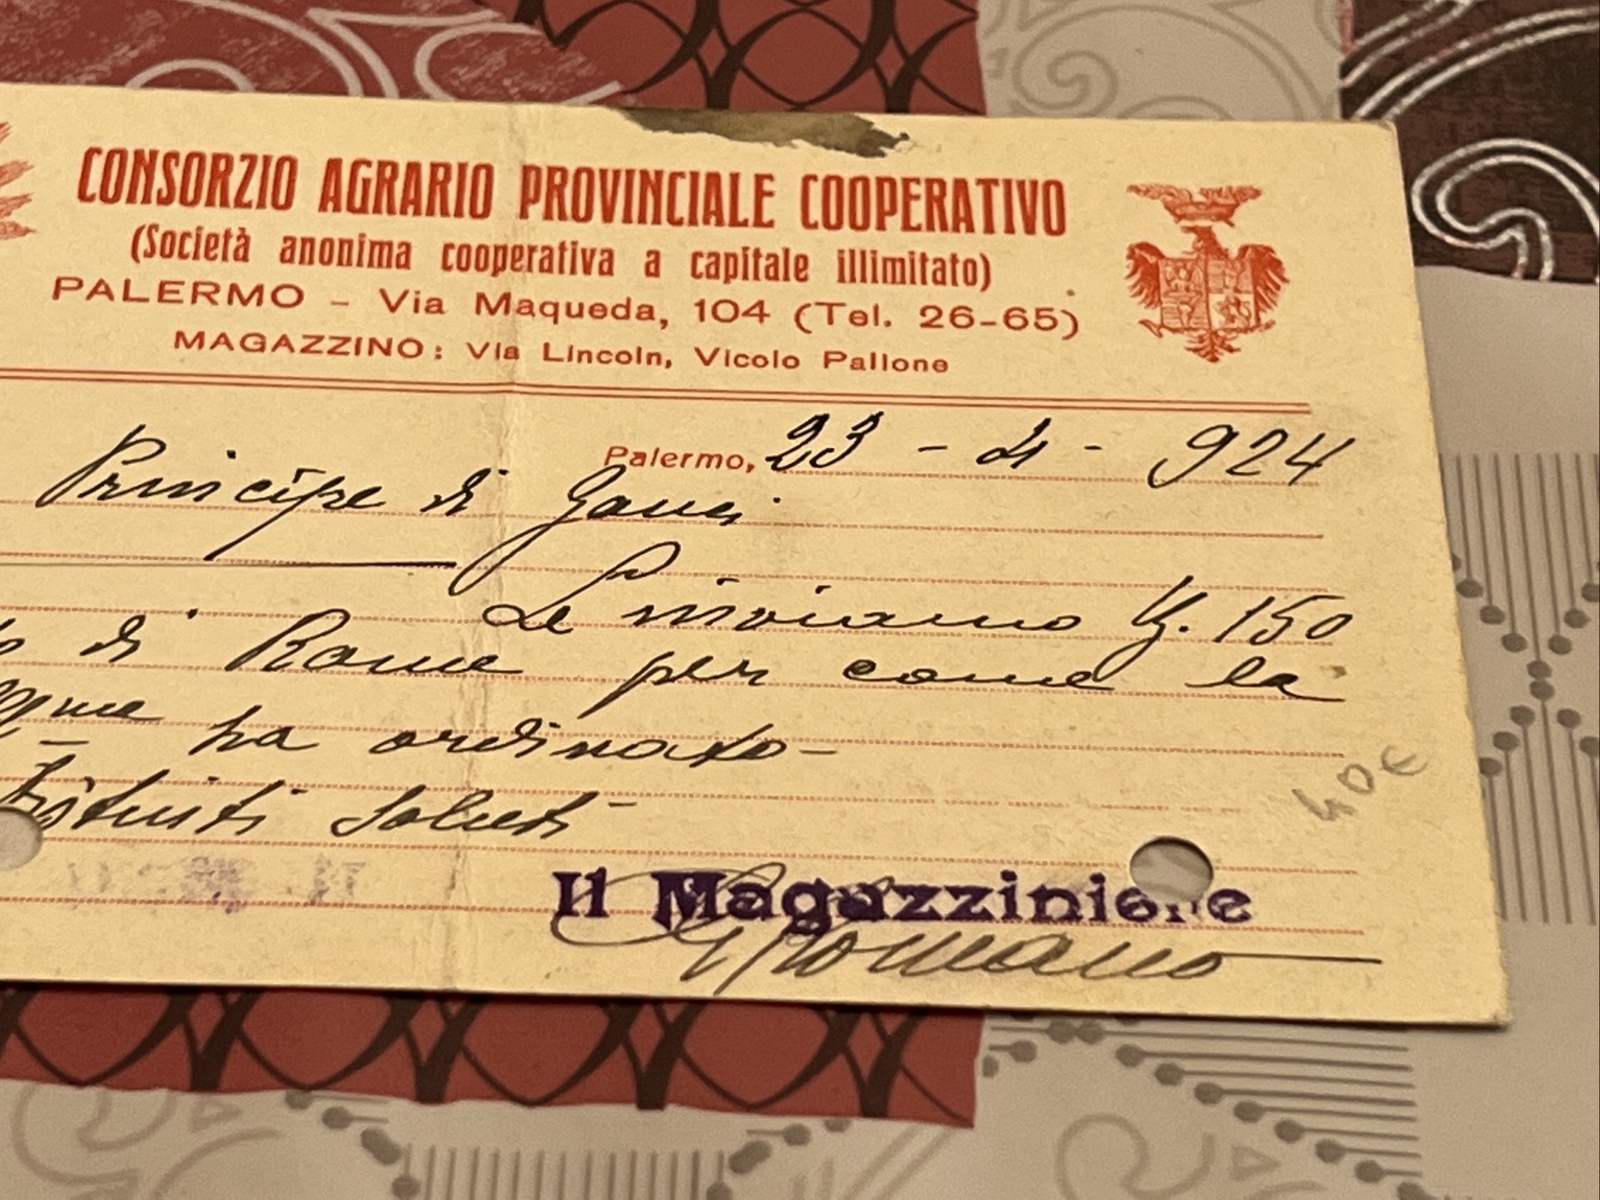 CONSORZIO AGRARIO PROVINCIALE COOPERATIVO
(Società anonima cooperativa a capitale illimitato)
PALERMO - Via Maqueda, 104 (Tel. 26-65)
MAGAZZINO: Via Lincoln, Vicolo Pallone
Palermo, 23 - 4 - 924
Principe di Ganci
Le inviamo 150
di Rame per come la
ha ordinato-
Distinti Saluti
40€
Il Magazziniere
Romano